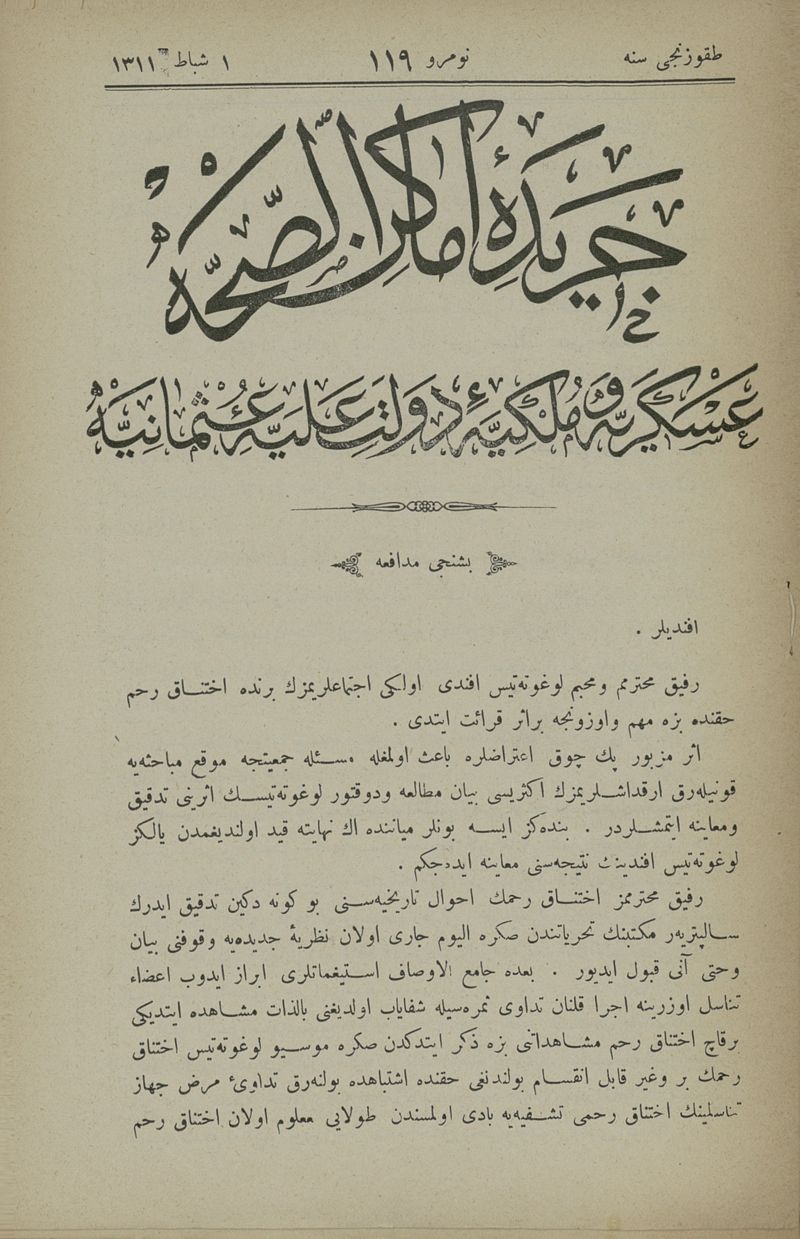 طقوزنجی سنه
نومرو ١١٩
١ شباط سنه ١٣١١
جریدهٔ اماکن الصحه
عسکریه و ملکیهٔ دولت علیهٔ عثمانیه
بشنجی مدافعه
افندیلر .
رفیق محترمم ومحبم لوغوته‌تیس افندی اولکی اجتماعلریمزك برنده اختناق رحم
حقنده بزه مهم واوزونجه براثر قرائت ایتدی .
اثر مزبور پك چوق اعتراضلره باعث اولمغله مسئله جمعیتجه موقع مباحثه‌یه
قونیله‌رق ارقداشلریمزك اکثریسی بیان مطالعه ودوقتور لوغوته‌تیسك اثرینی تدقیق
ومعاینه ایتمشلردر . بنده‌کز ایسه بونلر میاننده اك نهایته قید اولندیغمدن یالکز
لوغوته‌تیس افندینك نتیجه‌سنی معاینه ایده‌جکم .
رفیق محترممز اختناق رحمك احوال تاریخیه‌سنی بو کونه دکین تدقیق ایدرك
سالپتریه‌ر مکتبنك تحریاتندن صکره الیوم جاری اولان نظریهٔ جدیده‌یه وقوفنی بیان
وحتی آنی قبول ایدیور . بعده جامع الاوصاف استیغماتلری ابراز ایدوب اعضاء
تناسل اوزرینه اجرا قلنان تداوی ثمره‌سیله شفایاب اولدیغنی بالذات مشاهده ایتدیکی
برقاچ اختناق رحم مشاهداتنی بزه ذکر ایتدکدن صکره موسیو لوغوته‌تیس اختناق
رحمك بر وغیر قابل انقسام بولندنغی حقنده اشتباهده بولنه‌رق تداویٔ مرض جهاز
تناسلینك اختناق رحمی تشفیه‌یه بادی اولمسندن طولایی معلوم اولان اختناق رحم